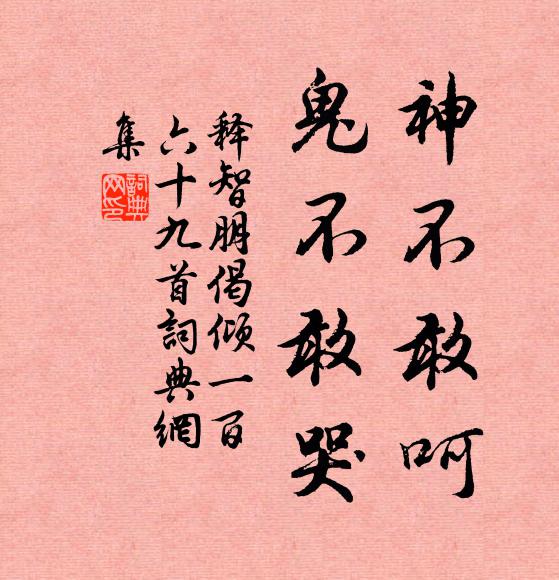 神不敢呵
鬼不敢哭
释智朋偈倾一百
六十九首詞典網
集
詞典
网印